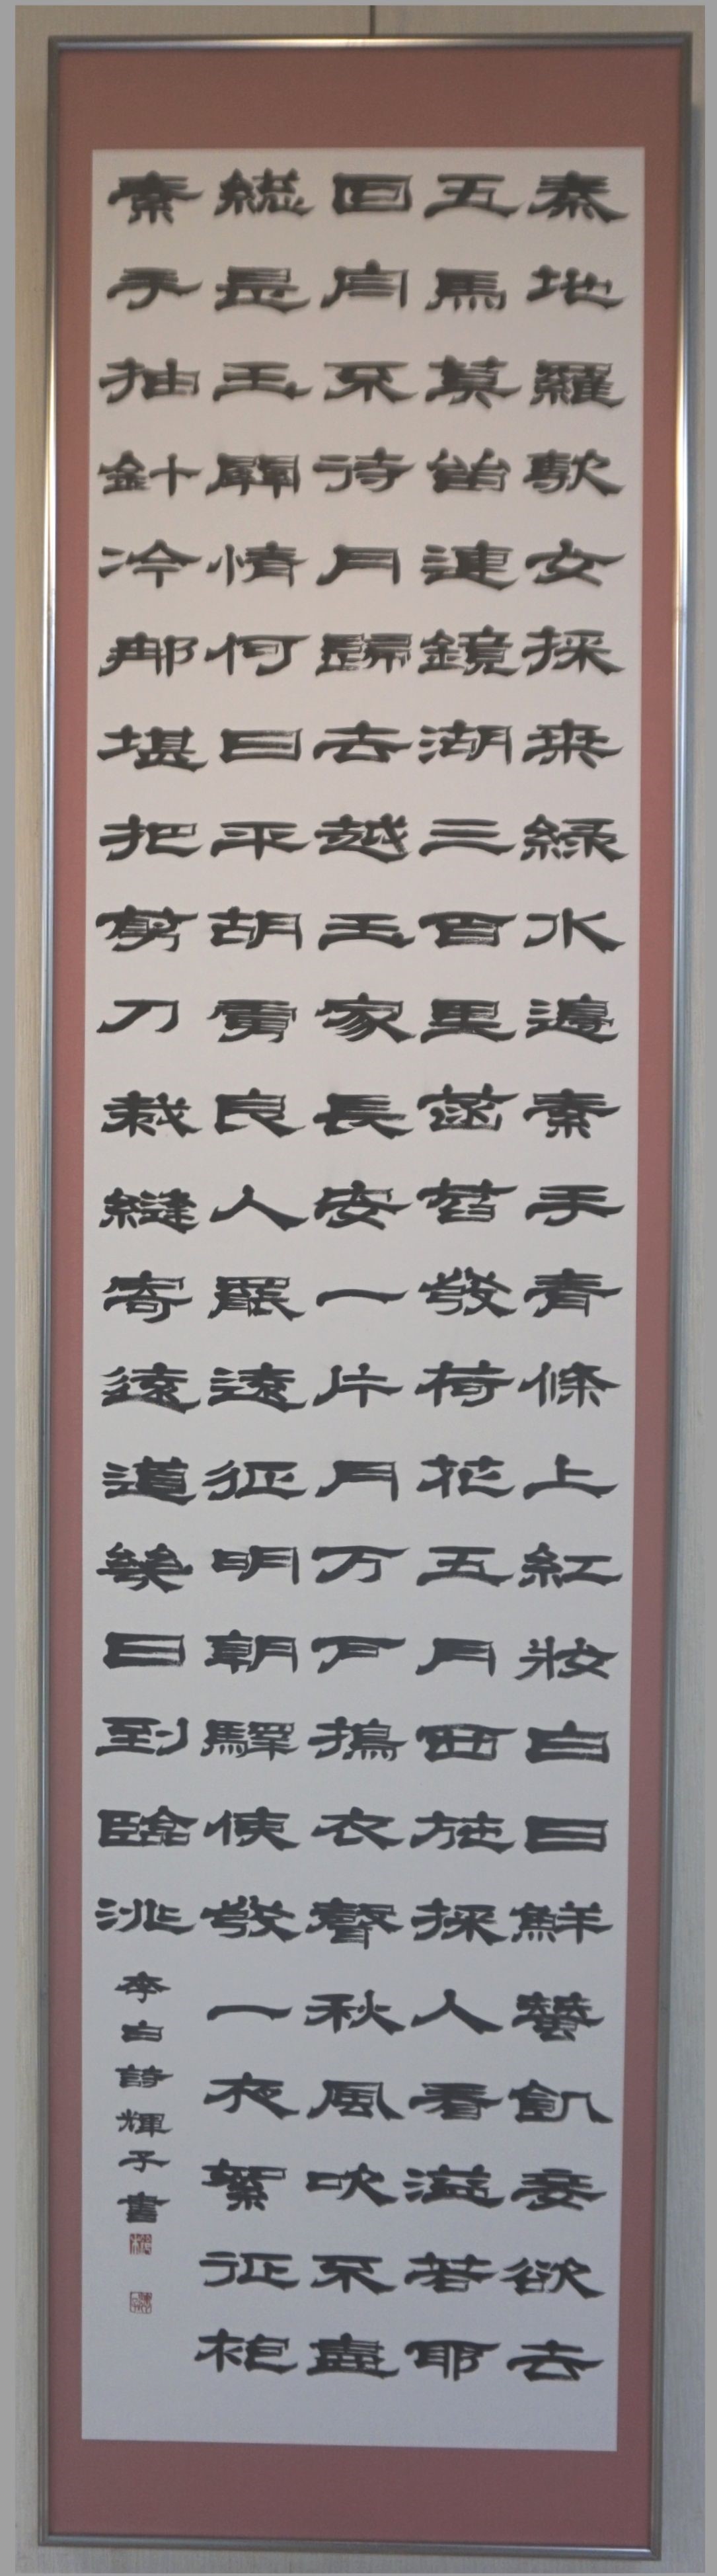 秦地羅敷女採桒緑水邊素手青條上紅妝白日鮮蠶飢妾欲去
五馬莫留連鏡湖三百里菡萏發荷花五月西施採人看溢若耶
回舟不待月歸去越王家長安一片月万戸擣衣聲秋風吹不盡
総是玉關情何日平胡虜良人罷遠征明朝驛使發一夜絮征袍
素手抽針冷那堪把剪刀裁縫寄遠道幾日到臨洮
李白詩輝子書